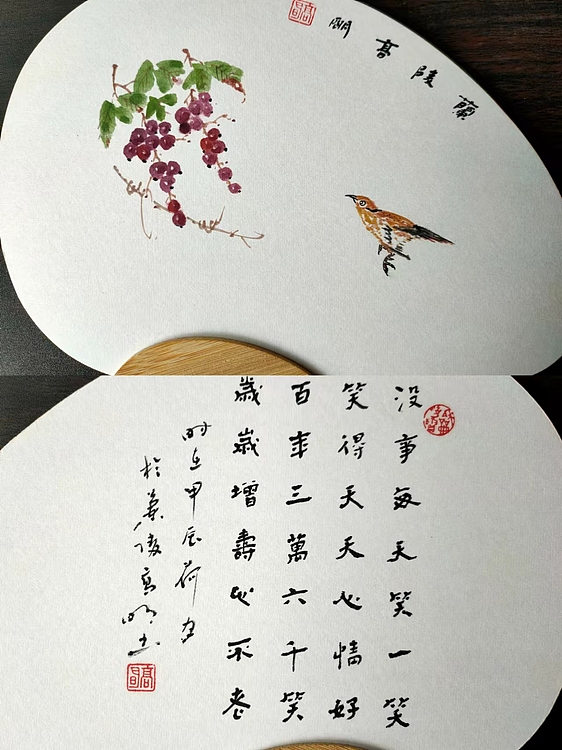 蘭陵髙朙
没事每天笑一笑
笑得天天心情好
百年三萬六千笑
歲歲增壽心不老
時在甲辰荷月
於蘭陵高明書